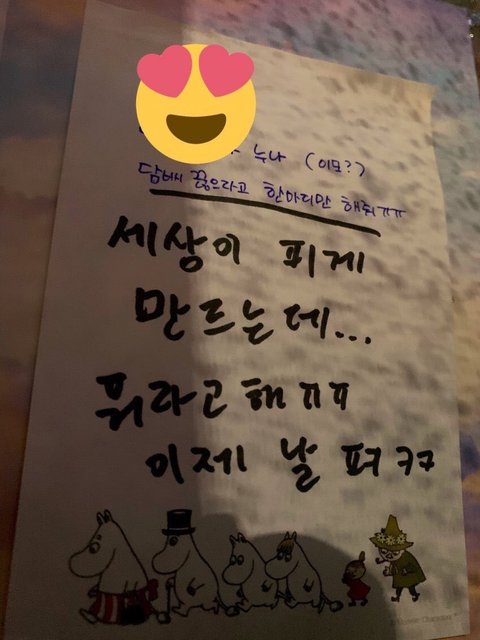 누나 (이모?)
담배 끊으라고 한마디만 해줘ㅠㅠ
세상이 피게
만드는데...
뭐라고해ㅠㅠ
이제 날 펴 ㅋㅋ